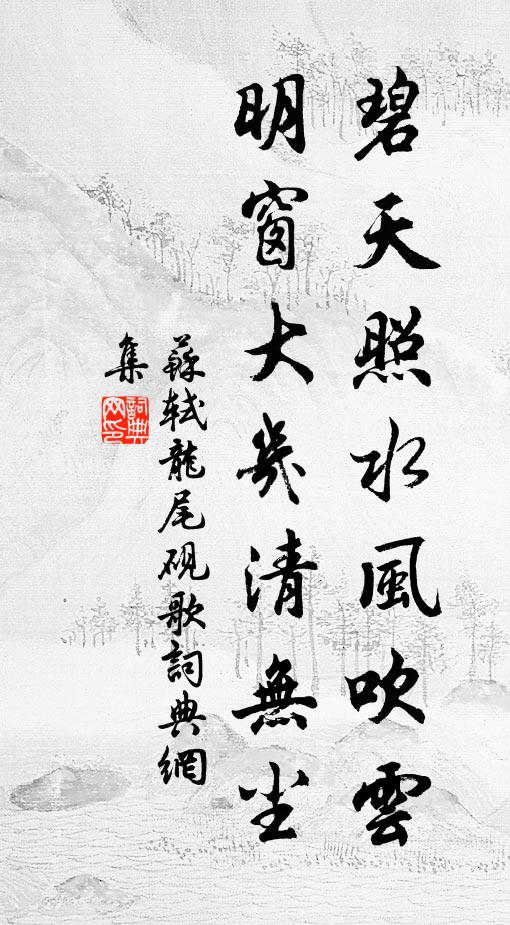 碧天照水風吹雲
明窗大幾清無尘
蘇軾龍尾硯歌詞典網
集
詞典
网印